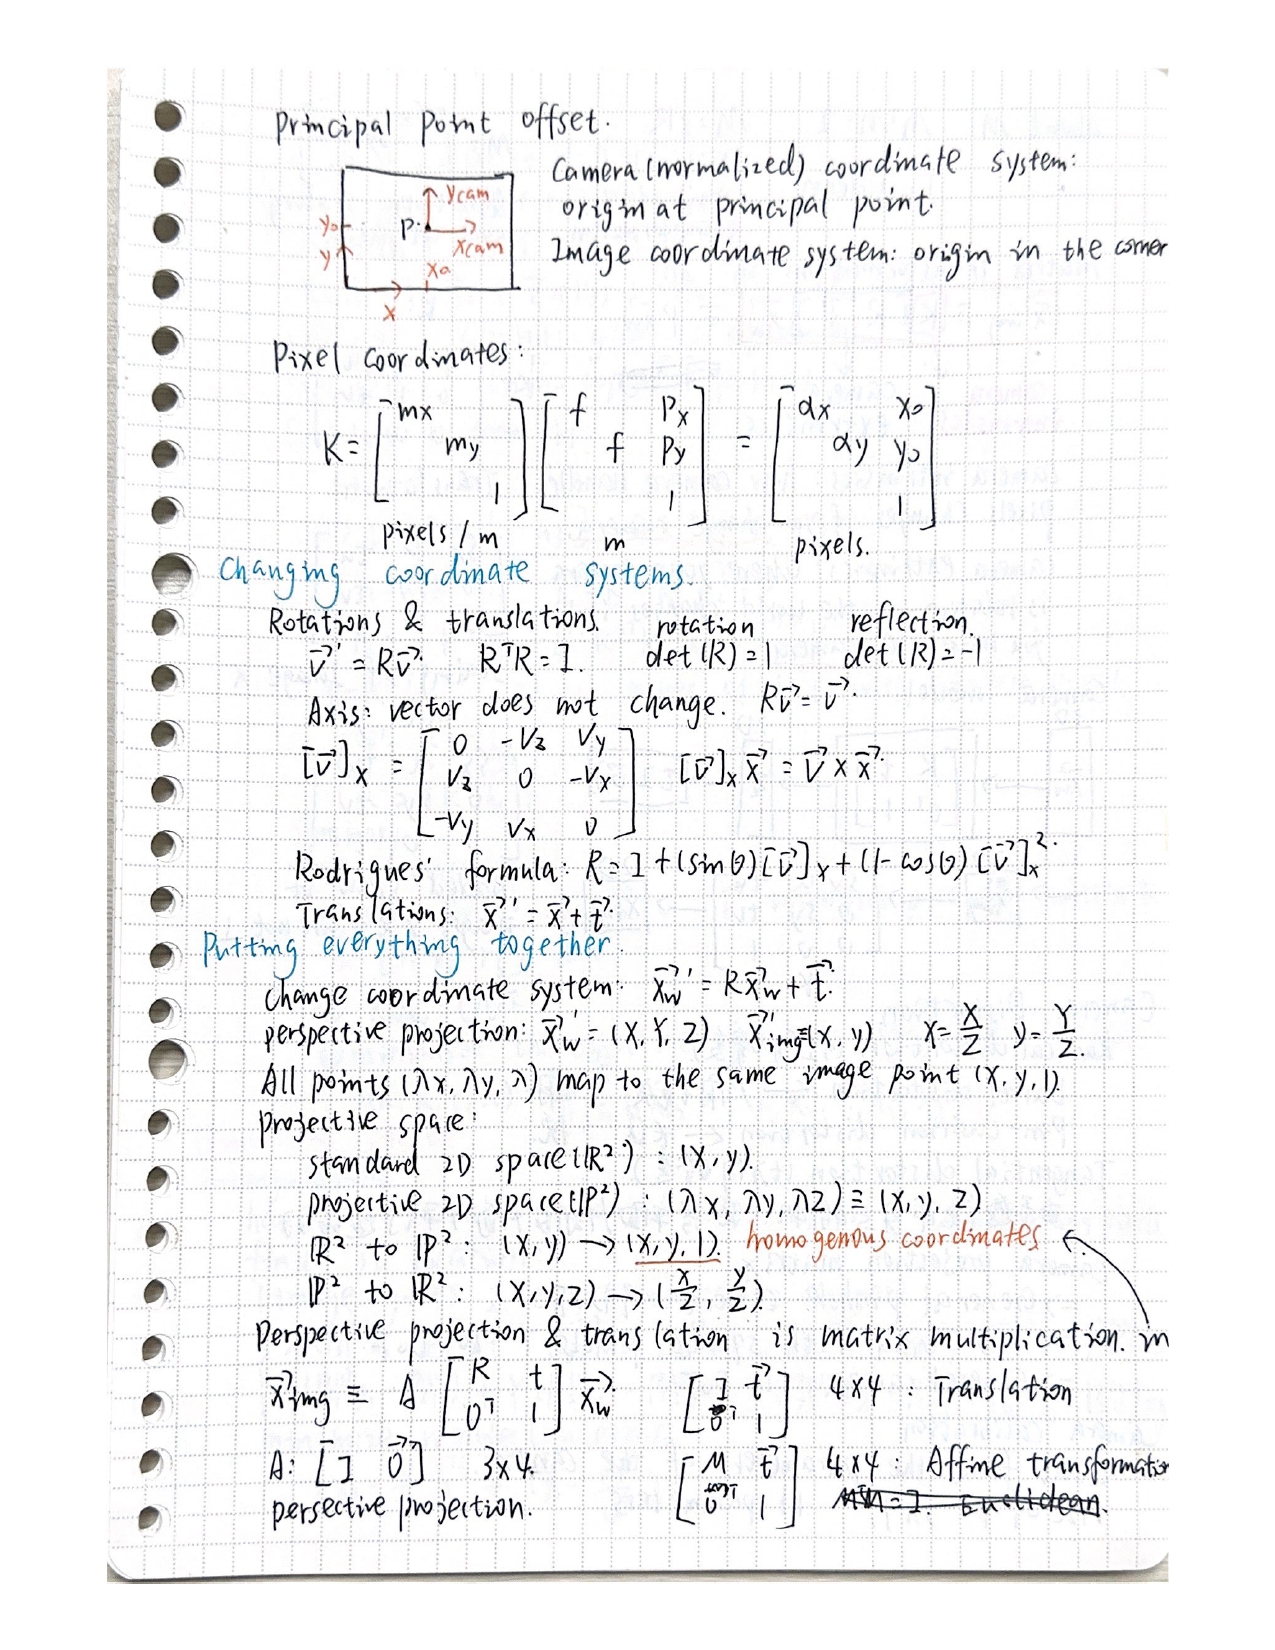 Principal point offset.
Camera (normalized) coordinate system:
origin at principal point.
Image coordinate system: origin in the corner
ycam
P.
xcam
y0
y
x0
x
Pixel coordinates:
K = [mx my 1] [f Px f Py 1] = [αx x0 αy y0 1]
pixels / m m pixels.
Changing coordinate systems.
Rotations & translations. rotation reflection.
v⃗' = Rv⃗. RᵀR = I. det(R) = 1 det(R) = -1
Axis: vector does not change. Rv⃗ = v⃗.
[v⃗]x = [0 -Vz Vy
Vz 0 -Vx
-Vy Vx 0] [v⃗]x x⃗ = v⃗ × x⃗.
Rodrigues' formula: R = I + (sinθ)[v⃗]x + (1-cosθ)[v⃗]x².
Translations: x⃗' = x⃗ + t⃗.
Putting everything together.
change coordinate system: x⃗w' = Rx⃗w + t⃗.
perspective projection: x⃗w' = (X, Y, Z) x⃗'img = (x, y) x = X/Z y = Y/Z.
All points (λx, λy, λ) map to the same image point (x, y, 1).
Projective space:
standard 2D space (ℝ²) : (x, y).
projective 2D space (ℙ²) : (λx, λy, λz) ≡ (x, y, z)
ℝ² to ℙ² : (x, y) → (x, y, 1). homogenous coordinates
ℙ² to ℝ² : (x, y, z) → (x/z, y/z).
Perspective projection & translation is matrix multiplication. in
x⃗img ≡ A [R t 0ᵀ 1] x⃗w. [I t⃗ 0ᵀ 1] 4×4 : Translation
A: [I 0⃗] 3×4. [M t⃗ 0ᵀ 1] 4×4 : Affine transformatio
persective projection. MᵀM = I. Euclidean.